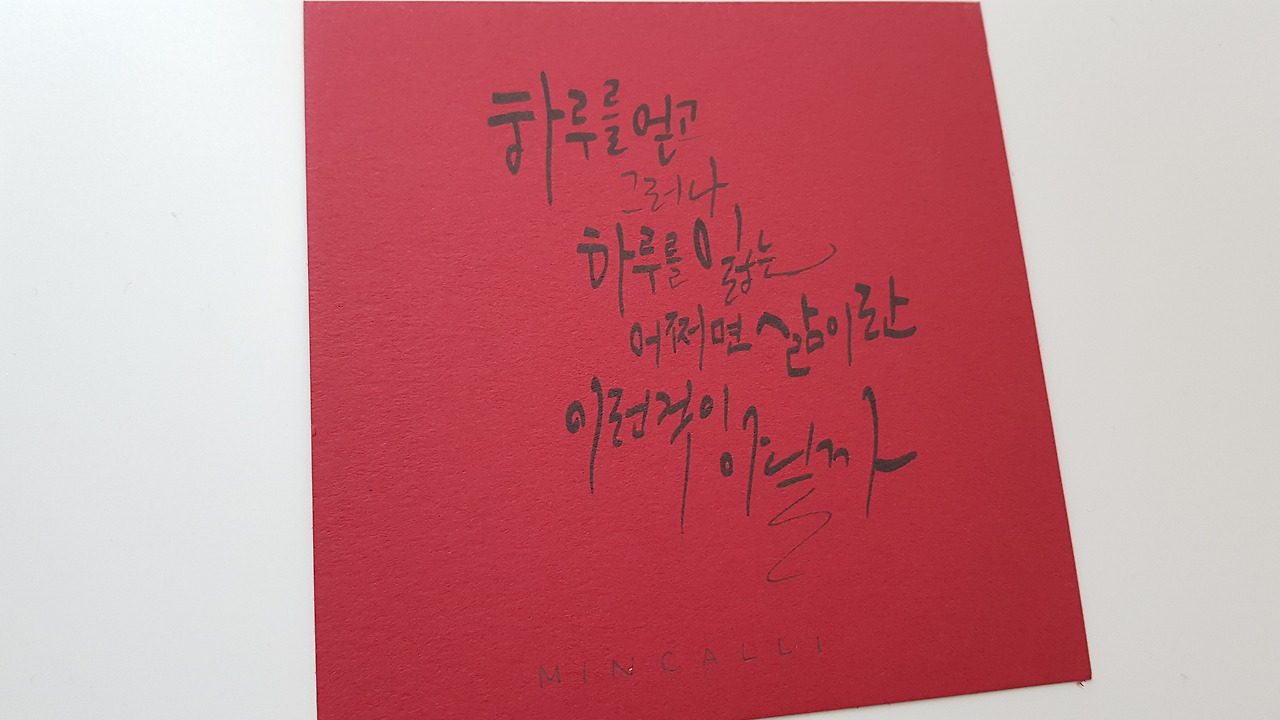 하루를 얻고
그러나
하루를 잃는
어쩌면 삶이란
이런적이 아닐까
MINCALLI